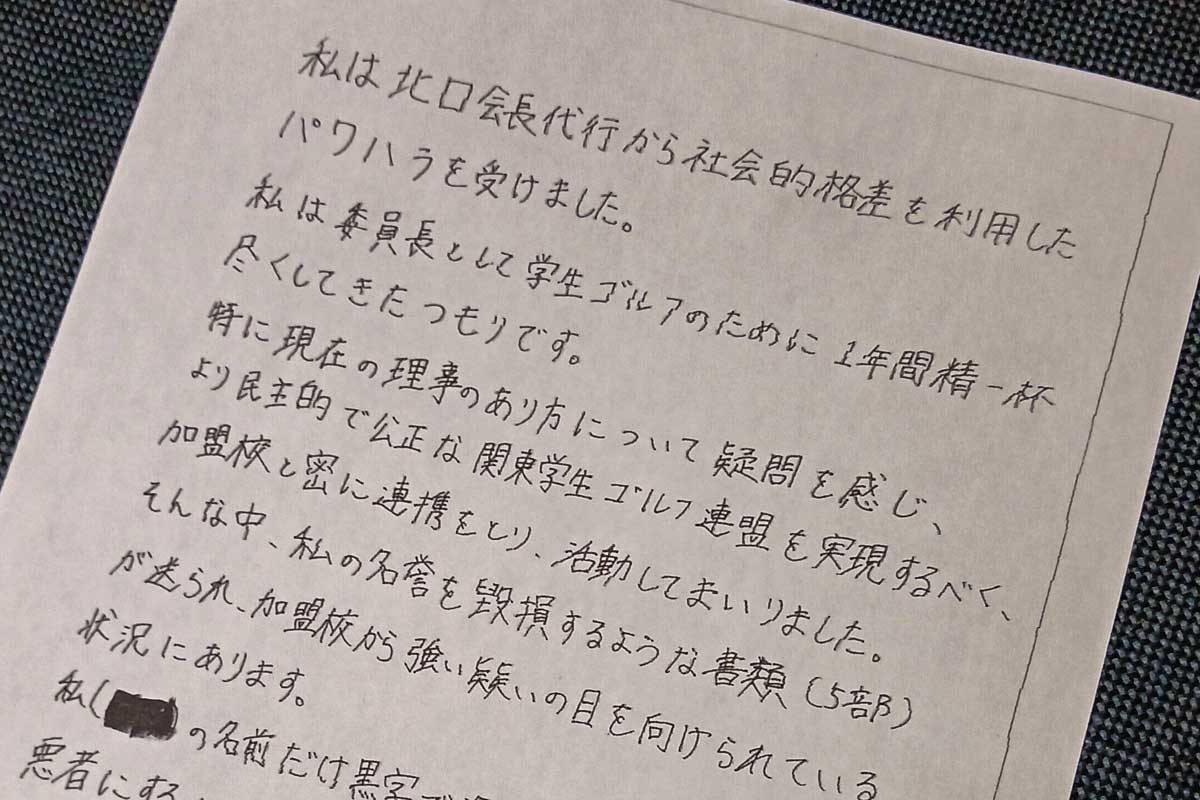 私は北口会長代行から社会的格差を利用した
パワハラを受けました。
私は委員長として学生ゴルフのために1年間精一杯
尽くしてきたつもりです。
特に現在の理事のあり方について疑問を感じ、
より民主的で公正な関東学生ゴルフ連盟を実現するべく、
加盟校と密に連携をとり、活動してまいりました。
そんな中、私の名誉を毀損するような書類(5部)
が送られ、加盟校から強い疑いの目を向けられている
状況にあります。
私(
の名前だけ黒字で
悪者にする